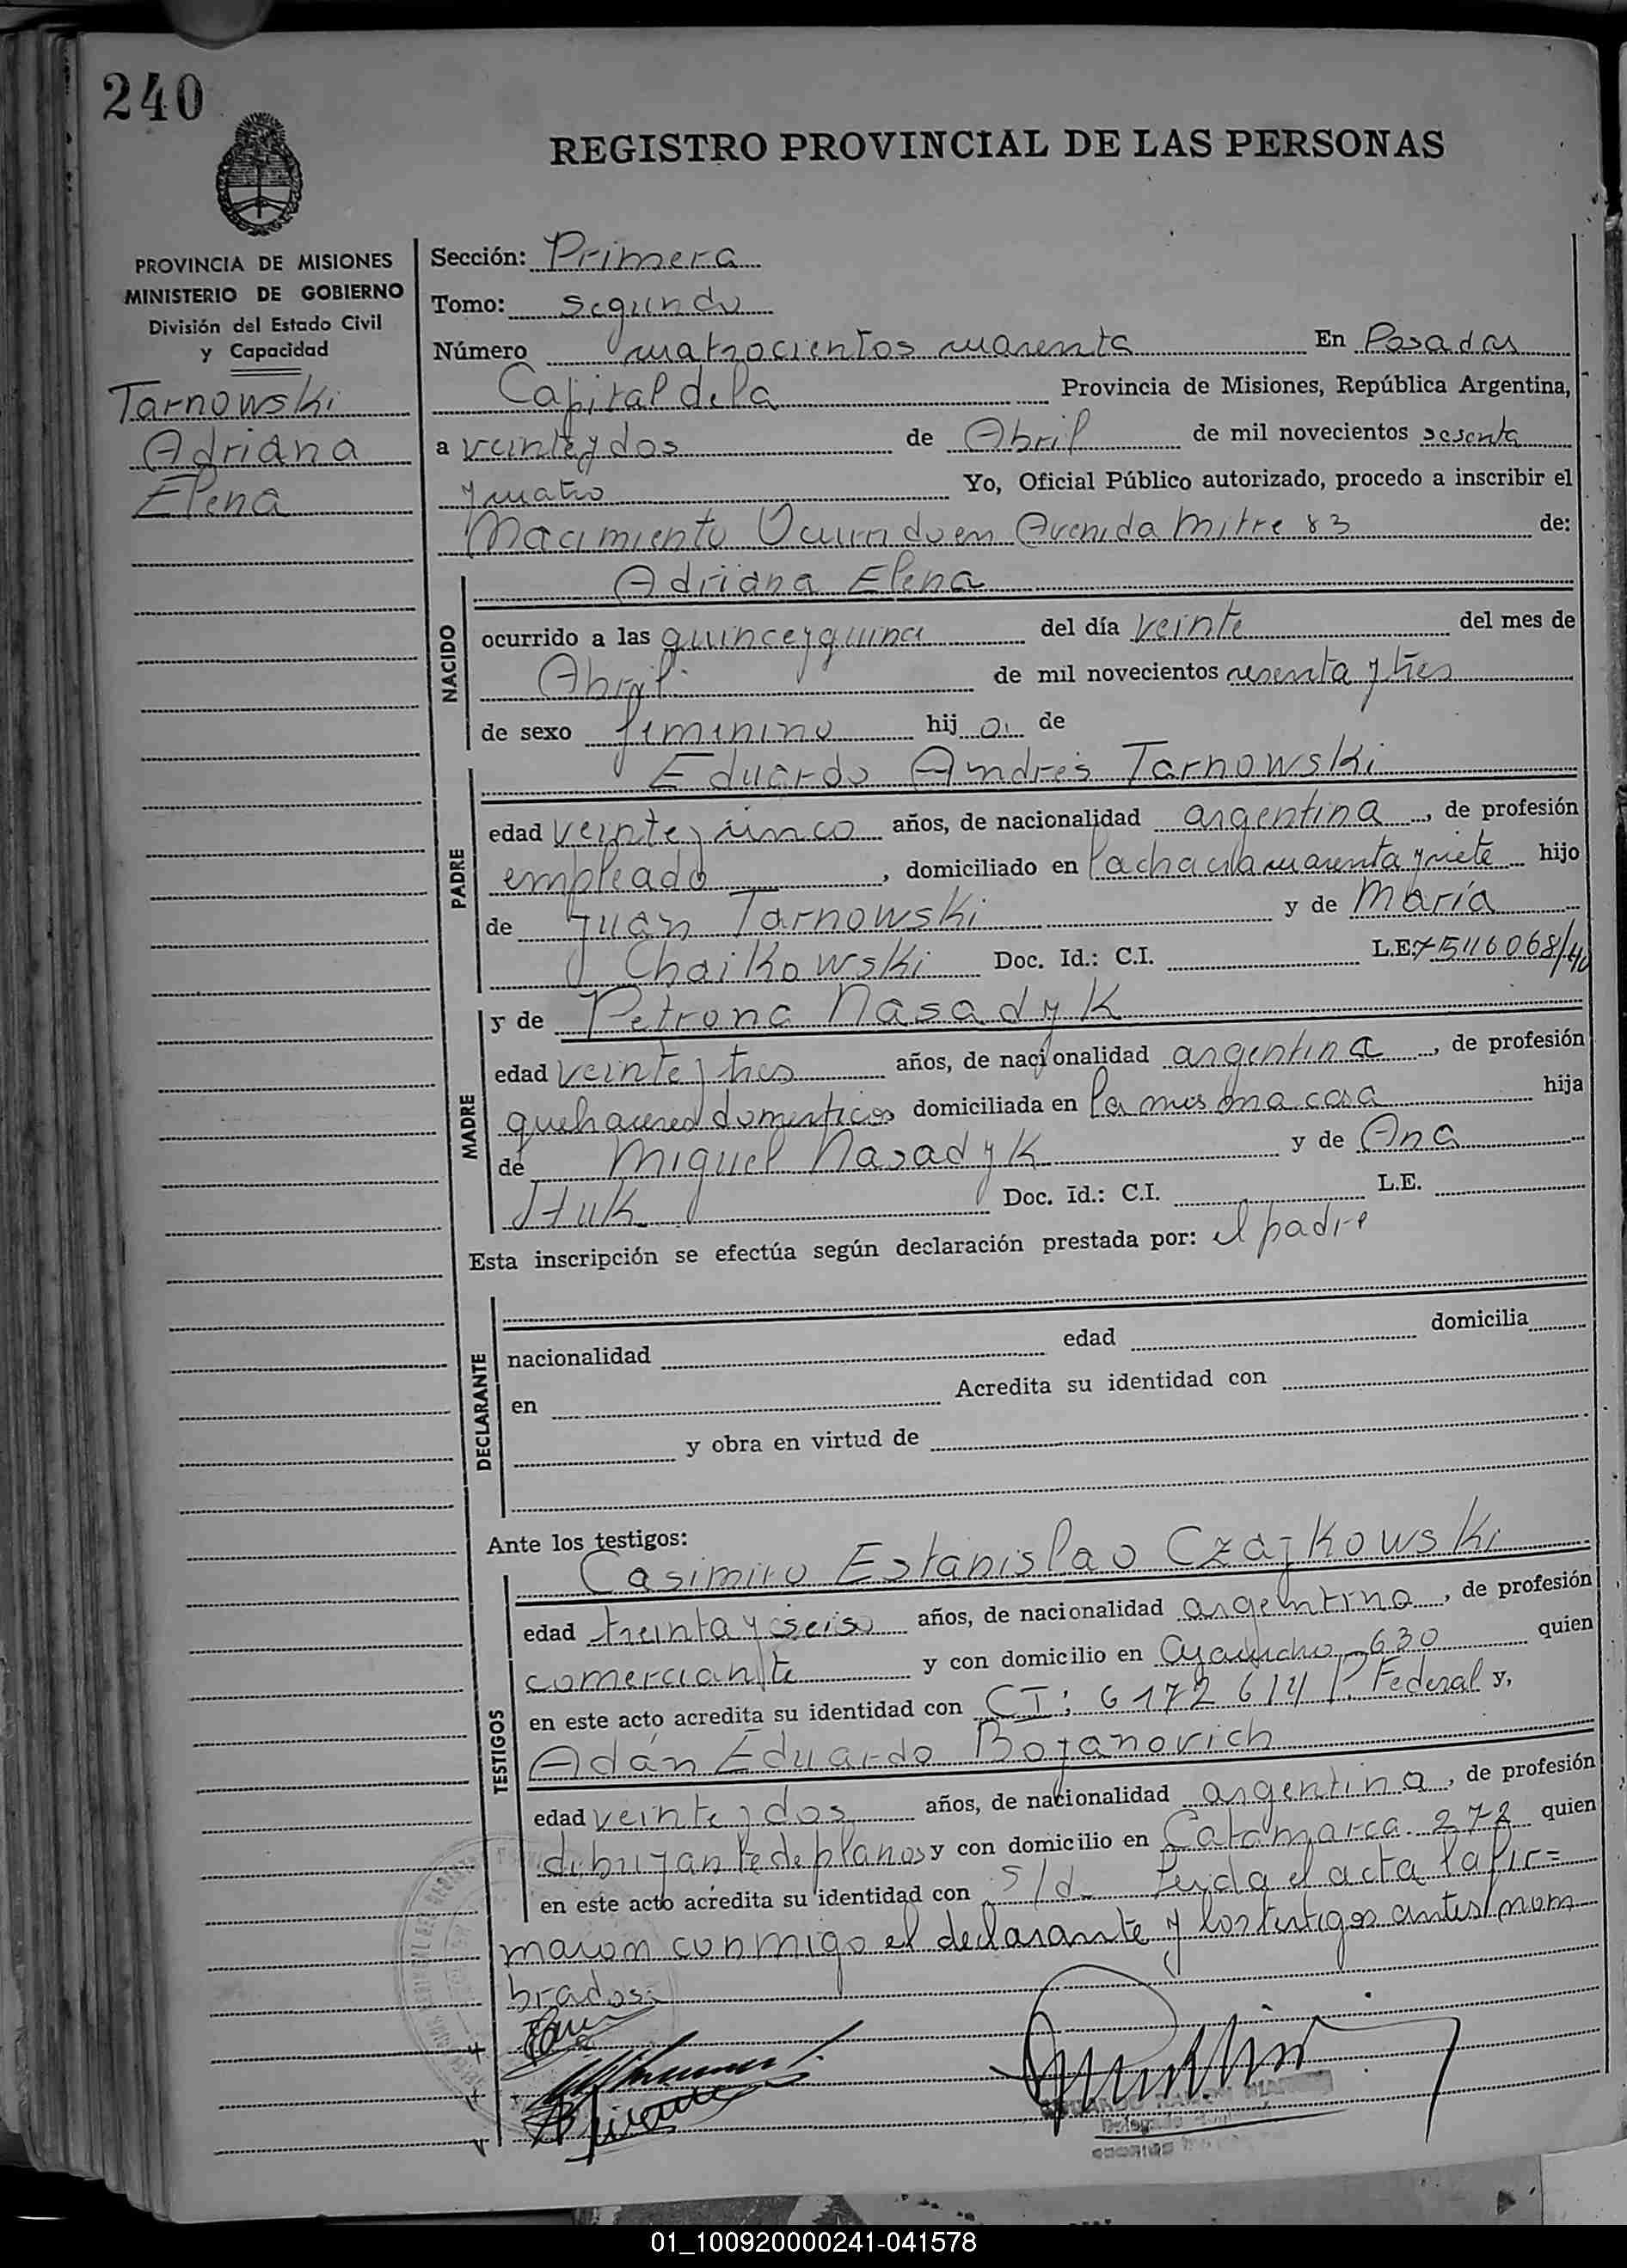 240
REGISTRO PROVINCIAL DE LAS PERSONAS
PROVINCIA DE MISIONES
MINISTERIO DE GOBIERNO
División del Estado Civil
y Capacidad
Tarnowski
Adriana
Elena
Sección: Primera
Tomo: segundo
Número cuatrocientos cuarenta En Posadas
Capital de la Provincia de Misiones, República Argentina,
a veinte y dos de Abril de mil novecientos sesenta
y cuatro Yo, Oficial Público autorizado, procedo a inscribir el
Nacimiento Ocurrido en Avenida Mitre 83 de:
NACIDO
Adriana Elena
ocurrido a las quince y quince del día veinte del mes de
Abril de mil novecientos sesenta y tres
de sexo femenino hij a de
PADRE
Eduardo Andrés Tarnowski
edad veinte y cinco años, de nacionalidad argentina, de profesión
empleado, domiciliado en la chacra cuarenta y siete hijo
de Juan Tarnowski y de María
Chaikowski Doc. Id.: C.I. L.E. 7516068/40
MADRE
y de Petrona Nasadyk
edad veinte y tres años, de nacionalidad argentina, de profesión
quehaceres domesticos domiciliada en la misma casa hija
de Miguel Nasadyk y de Ana
Huk Doc. Id.: C.I. L.E.
Esta inscripción se efectúa según declaración prestada por: el padre
DECLARANTE
nacionalidad edad domicilia
en Acredita su identidad con
y obra en virtud de
Ante los testigos:
TESTIGOS
Casimiro Estanislao Czajkowski
edad treinta y seis años, de nacionalidad argentino, de profesión
comerciante y con domicilio en Ayacucho 630 quien
en este acto acredita su identidad con CI: 6172614 P. Federal y,
Adán Eduardo Bojanovich
edad veinte y dos años, de nacionalidad argentina, de profesión
dibujante de planos y con domicilio en Catamarca 272 quien
en este acto acredita su identidad con s/d. Leida el acta la fir=
maron conmigo el declarante y los testigos antes nom
brados.
01_100920000241-041578